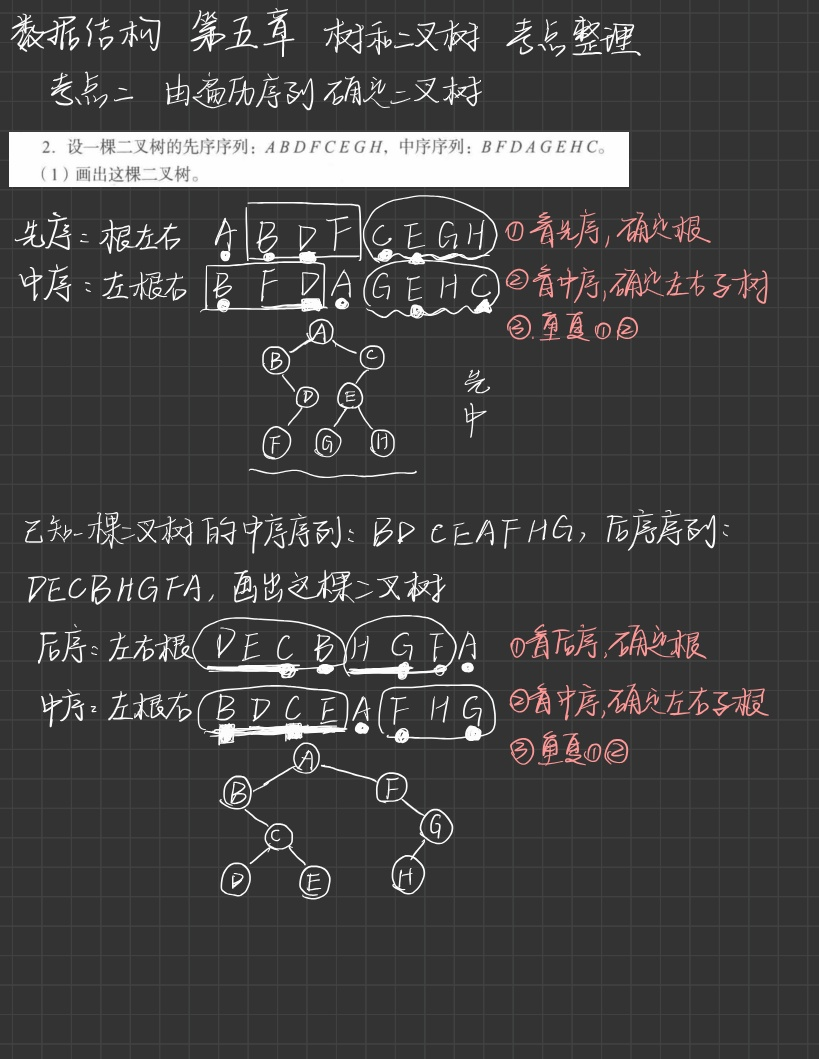 数据结构 第五章 树和二叉树 考点整理
考点二 由遍历序列确定二叉树
2. 设一棵二叉树的先序序列：ABDFCEGH，中序序列：BFDAGEHC。
（1）画出这棵二叉树。
先序：根左右 A B D F C E G H ①看先序，确定根
中序：左根右 B F D A G E H C ②看中序，确定左右子树
③.重复①②
A
B C
先
D E
中
F G H
已知一棵二叉树的中序序列：BD CEAFHG，后序序列：
DECBHGFA，画出这棵二叉树
后序：左右根 D E C B H G F A ①看后序，确定根
中序：左根右 B D C E A F H G ②看中序，确定左右子根
③重复①②
A
B F
C G
D E H